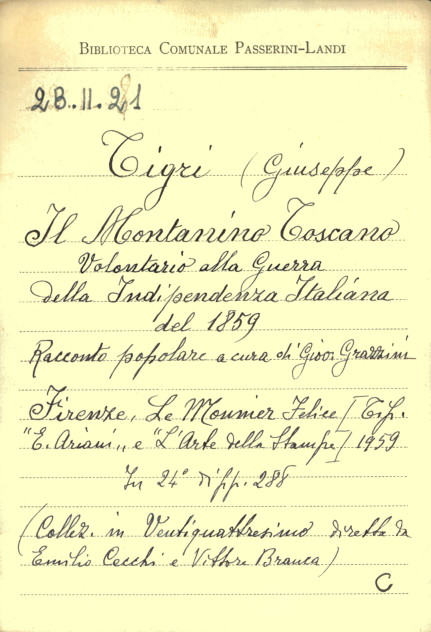 BIBLIOTECA COMUNALE PASSERINI-LANDI
2B.II.21
Tigri (Giuseppe)
Il Montanino Toscano
Volontario alla Guerra
della Indipendenza Italiana
del 1859
Racconto popolare a cura di Giov. Grazzini
Firenze, Le Monnier Felice [Tip.
"E. Ariani" e "L'Arte della Stampa] 1959
In 24° di pp. 288
(Collez. in Ventiquattresimo diretta da
Emilio Cecchi e Vittore Branca)
C